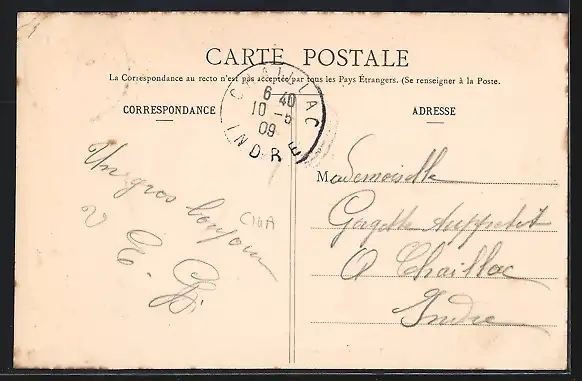 CARTE POSTALE
La Correspondance au recto n'est pas acceptée par tous les Pays Étrangers. (Se renseigner à la Poste.
CORRESPONDANCE
ADRESSE
CHAILLAC
6-40
10 -5
09
INDRE
Un gros bonjour
E. B.
CHA
Mademoiselle
A Chaillac
Indre